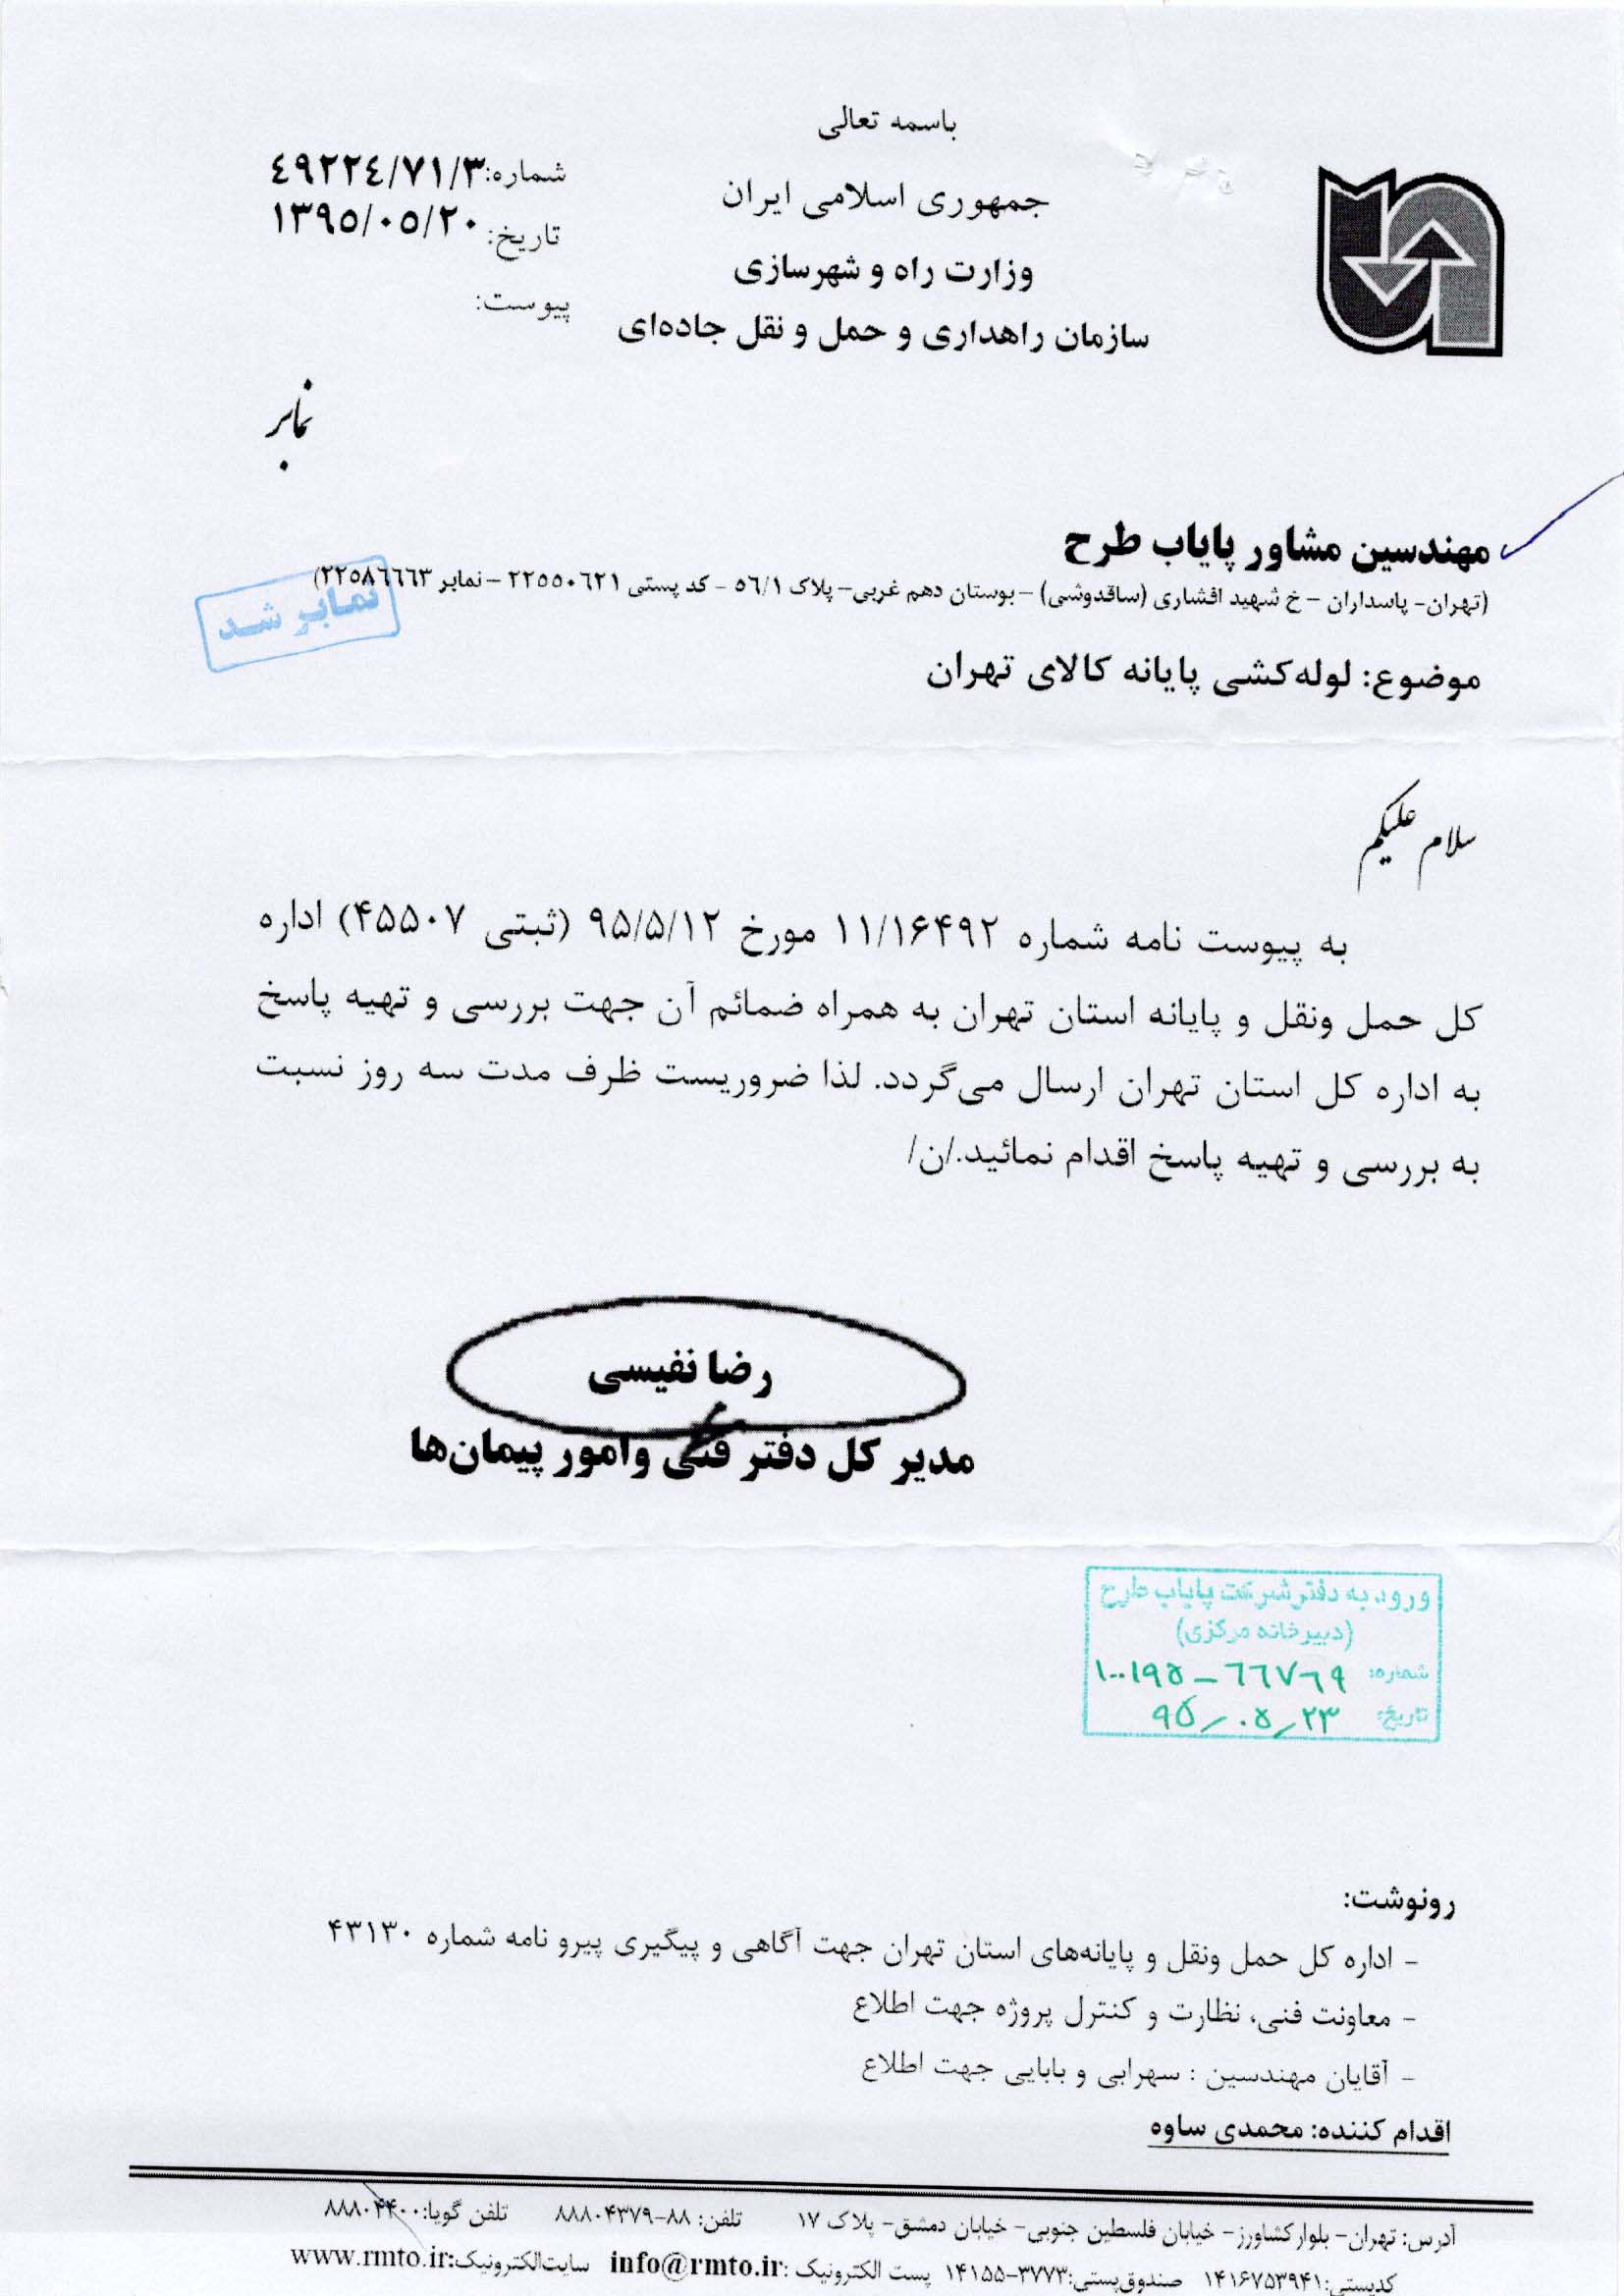 باسمه تعالی
جمهوری اسلامی ایران
وزارت راه و شهرسازی
سازمان راهداری و حمل و نقل جاده‌ای
شماره: ٤٩٢٢٤/٧١/٣
تاریخ: ١٣٩٥/٠٥/٢٠
پیوست:
نمابر
مهندسین مشاور پایاب طرح
(تهران- پاسداران – خ شهید افشاری (ساقدوشی) – بوستان دهم غربی- پلاک ٥٦/١ - کد پستی ٢٢٥٥٠٦٢١ – نمابر ٢٢٥٨٦٦٦٣)
نمابر شد
موضوع: لوله‌کشی پایانه کالای تهران
سلام علیکم
به پیوست نامه شماره ۱۱/۱۶۴۹۲ مورخ ۹۵/۵/۱۲ (ثبتی ۴۵۵۰۷) اداره
کل حمل ونقل و پایانه استان تهران به همراه ضمائم آن جهت بررسی و تهیه پاسخ
به اداره کل استان تهران ارسال می‌گردد. لذا ضروریست ظرف مدت سه روز نسبت
به بررسی و تهیه پاسخ اقدام نمائید./ن/
رضا نفیسی
مدیر کل دفتر فنی وامور پیمان‌ها
ورود به دفتر شرکت پایاب طرح
(دبیرخانه مرکزی)
شماره: ۱۰۰۱۹۵ – ٦٦٧٦٩
تاریخ: ۹۵/۰۵/۲۳
رونوشت:
- اداره کل حمل ونقل و پایانه‌های استان تهران جهت آگاهی و پیگیری پیرو نامه شماره ۴۳۱۳۰
- معاونت فنی، نظارت و کنترل پروژه جهت اطلاع
- آقایان مهندسین : سهرابی و بابایی جهت اطلاع
اقدام کننده: محمدی ساوه
آدرس: تهران- بلوارکشاورز- خیابان فلسطین جنوبی- خیابان دمشق- پلاک ۱۷ تلفن: ۸۸-۸۸۸۰۴۳۷۹ تلفن گویا: ۸۸۸۰۴۴۰۰
کدپستی:۱۴۱۶۷۵۳۹۴۱ صندوق‌پستی:۳۷۷۳-۱۴۱۵۵ پست الکترونیک: info@rmto.ir سایت‌الکترونیک: www.rmto.ir